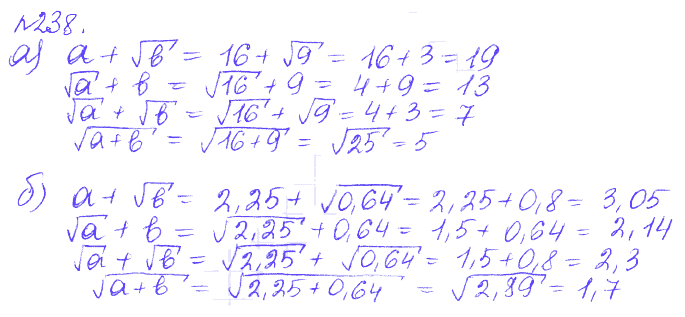 №238.
а) a + √b = 16 + √9 = 16 + 3 = 19
√a + b = √16 + 9 = 4 + 9 = 13
√a + √b = √16 + √9 = 4 + 3 = 7
√(a + b) = √(16 + 9) = √25 = 5
б) a + √b = 2,25 + √0,64 = 2,25 + 0,8 = 3,05
√a + b = √2,25 + 0,64 = 1,5 + 0,64 = 2,14
√a + √b = √2,25 + √0,64 = 1,5 + 0,8 = 2,3
√(a + b) = √(2,25 + 0,64) = √2,89 = 1,7